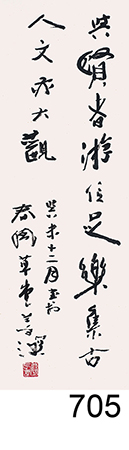 與賢者游信足樂集古
人文亦大觀
癸未十二月書於
草堂
705